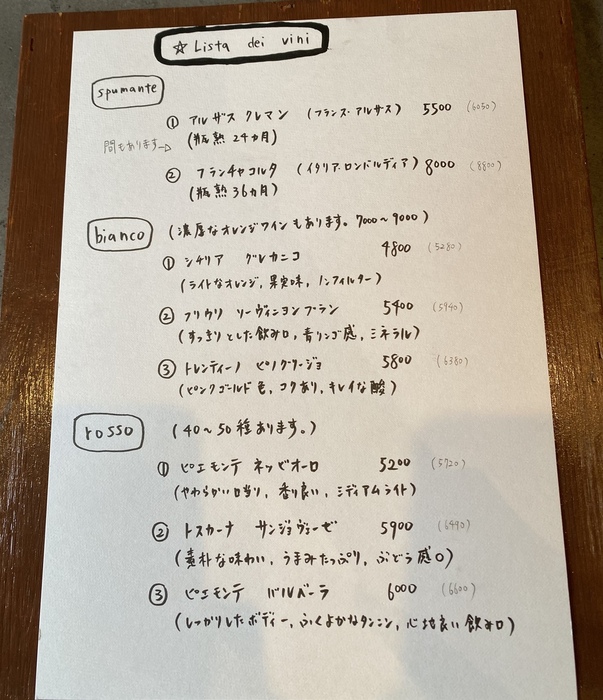 ☆ Lista dei vini
spumante
① アルザス クレマン (フランス・アルザス) 5500 (6050)
(瓶熟 24カ月)
間もあります→
② フランチャコルタ (イタリア・ロンバルディア) 8000 (8800)
(瓶熟 36カ月)
bianco (濃厚なオレンジワインもあります。7000〜9000)
① シチリア グレカニコ 4800 (5280)
(ライトなオレンジ, 果実味, ノンフィルター)
② フリウリ ソーヴィニヨンブラン 5400 (5940)
(すっきりとした飲み口, 青リンゴ感, ミネラル)
③ トレンティーノ ピノグリージョ 5800 (6380)
(ピンクゴールド色, コクあり, キレイな酸)
rosso (40〜50種あります。)
① ピエモンテ ネッビオーロ 5200 (5720)
(やわらかい口当り, 香り良い, ミディアムライト)
② トスカーナ サンジョヴェーゼ 5900 (6490)
(素朴な味わい, うまみたっぷり, ぶどう感○)
③ ピエモンテ バルベーラ 6000 (6600)
(しっかりしたボディー, ふくよかなタンニン, 心地良い飲み口)